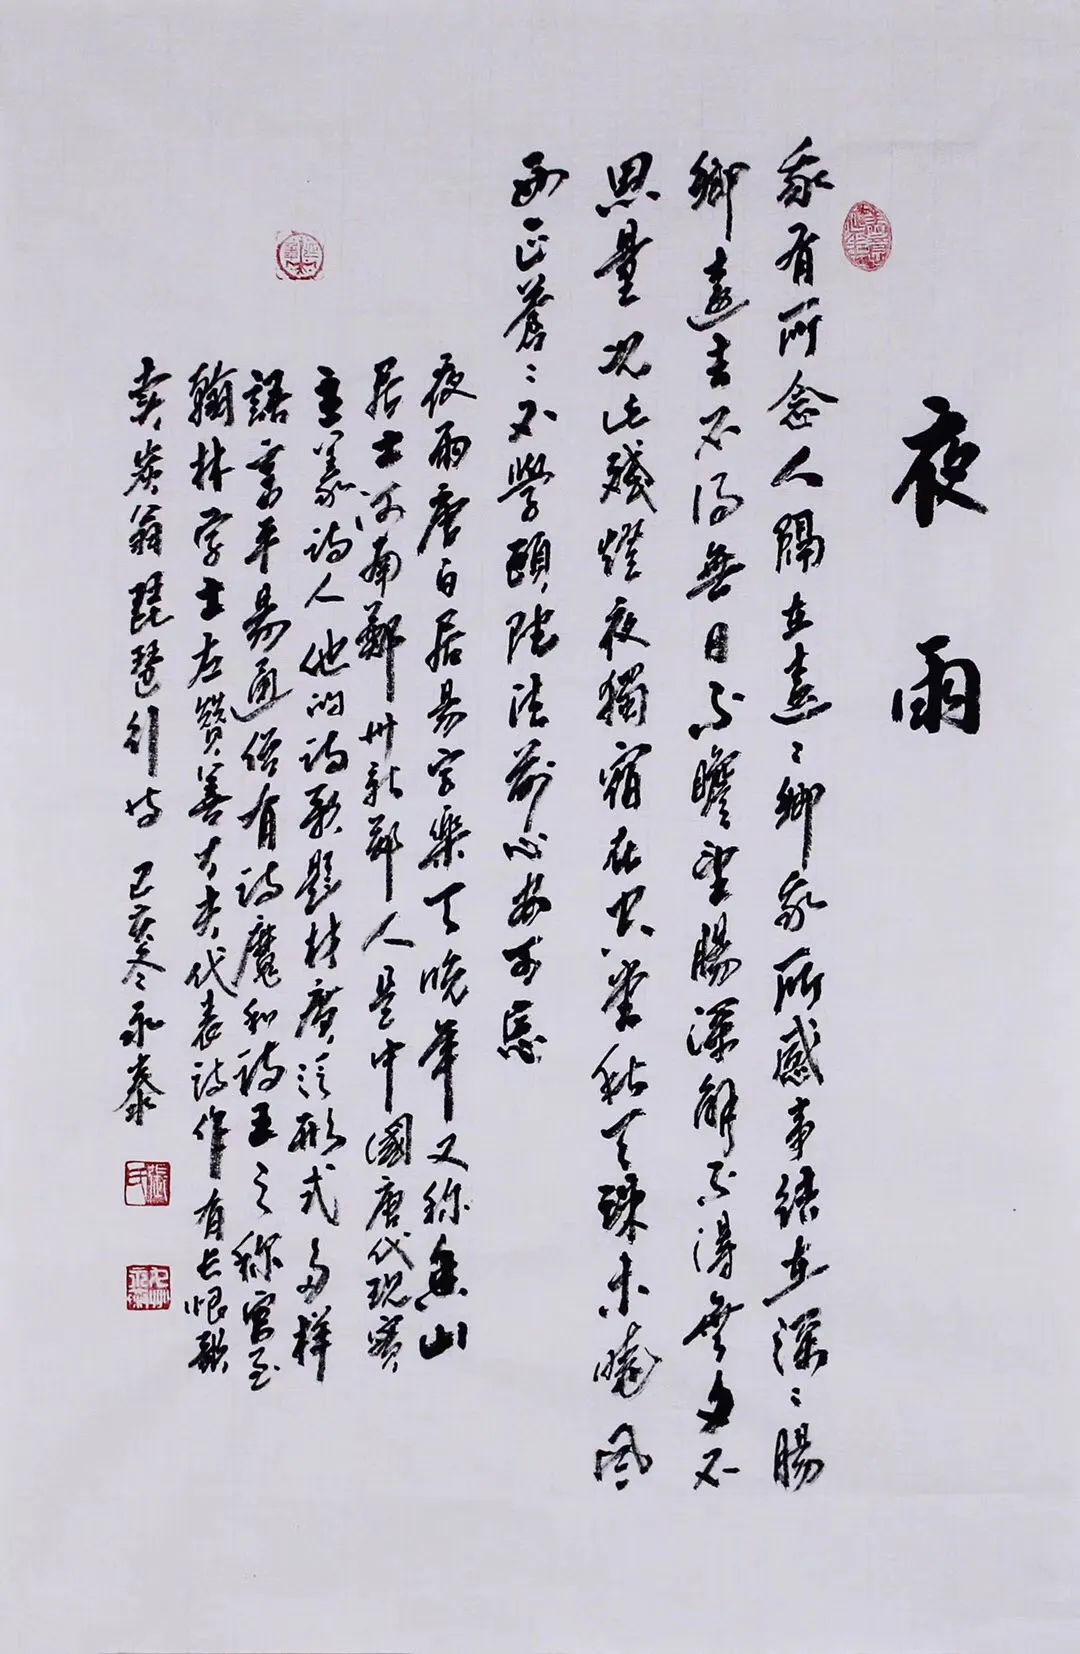 夜雨
我有所念人隔在遠〻鄉我所感事結在深〻腸
鄉遠去不得無日不瞻望腸深解不得無夕不
思量况此殘燈夜獨宿在空堂秋天殊未曉風
雨正蒼〻不學頭陀法前心安可忘
夜雨唐白居易字樂天晚年又称香山
居士河南鄭州新郑人是中國唐代现實
主義诗人他的诗歌题材廣泛形式多样
語言平易通俗有诗魔和诗王之称官至
翰林学士左贊善大夫代表诗作有长恨歌
卖炭翁琵琶行等己亥冬永泰